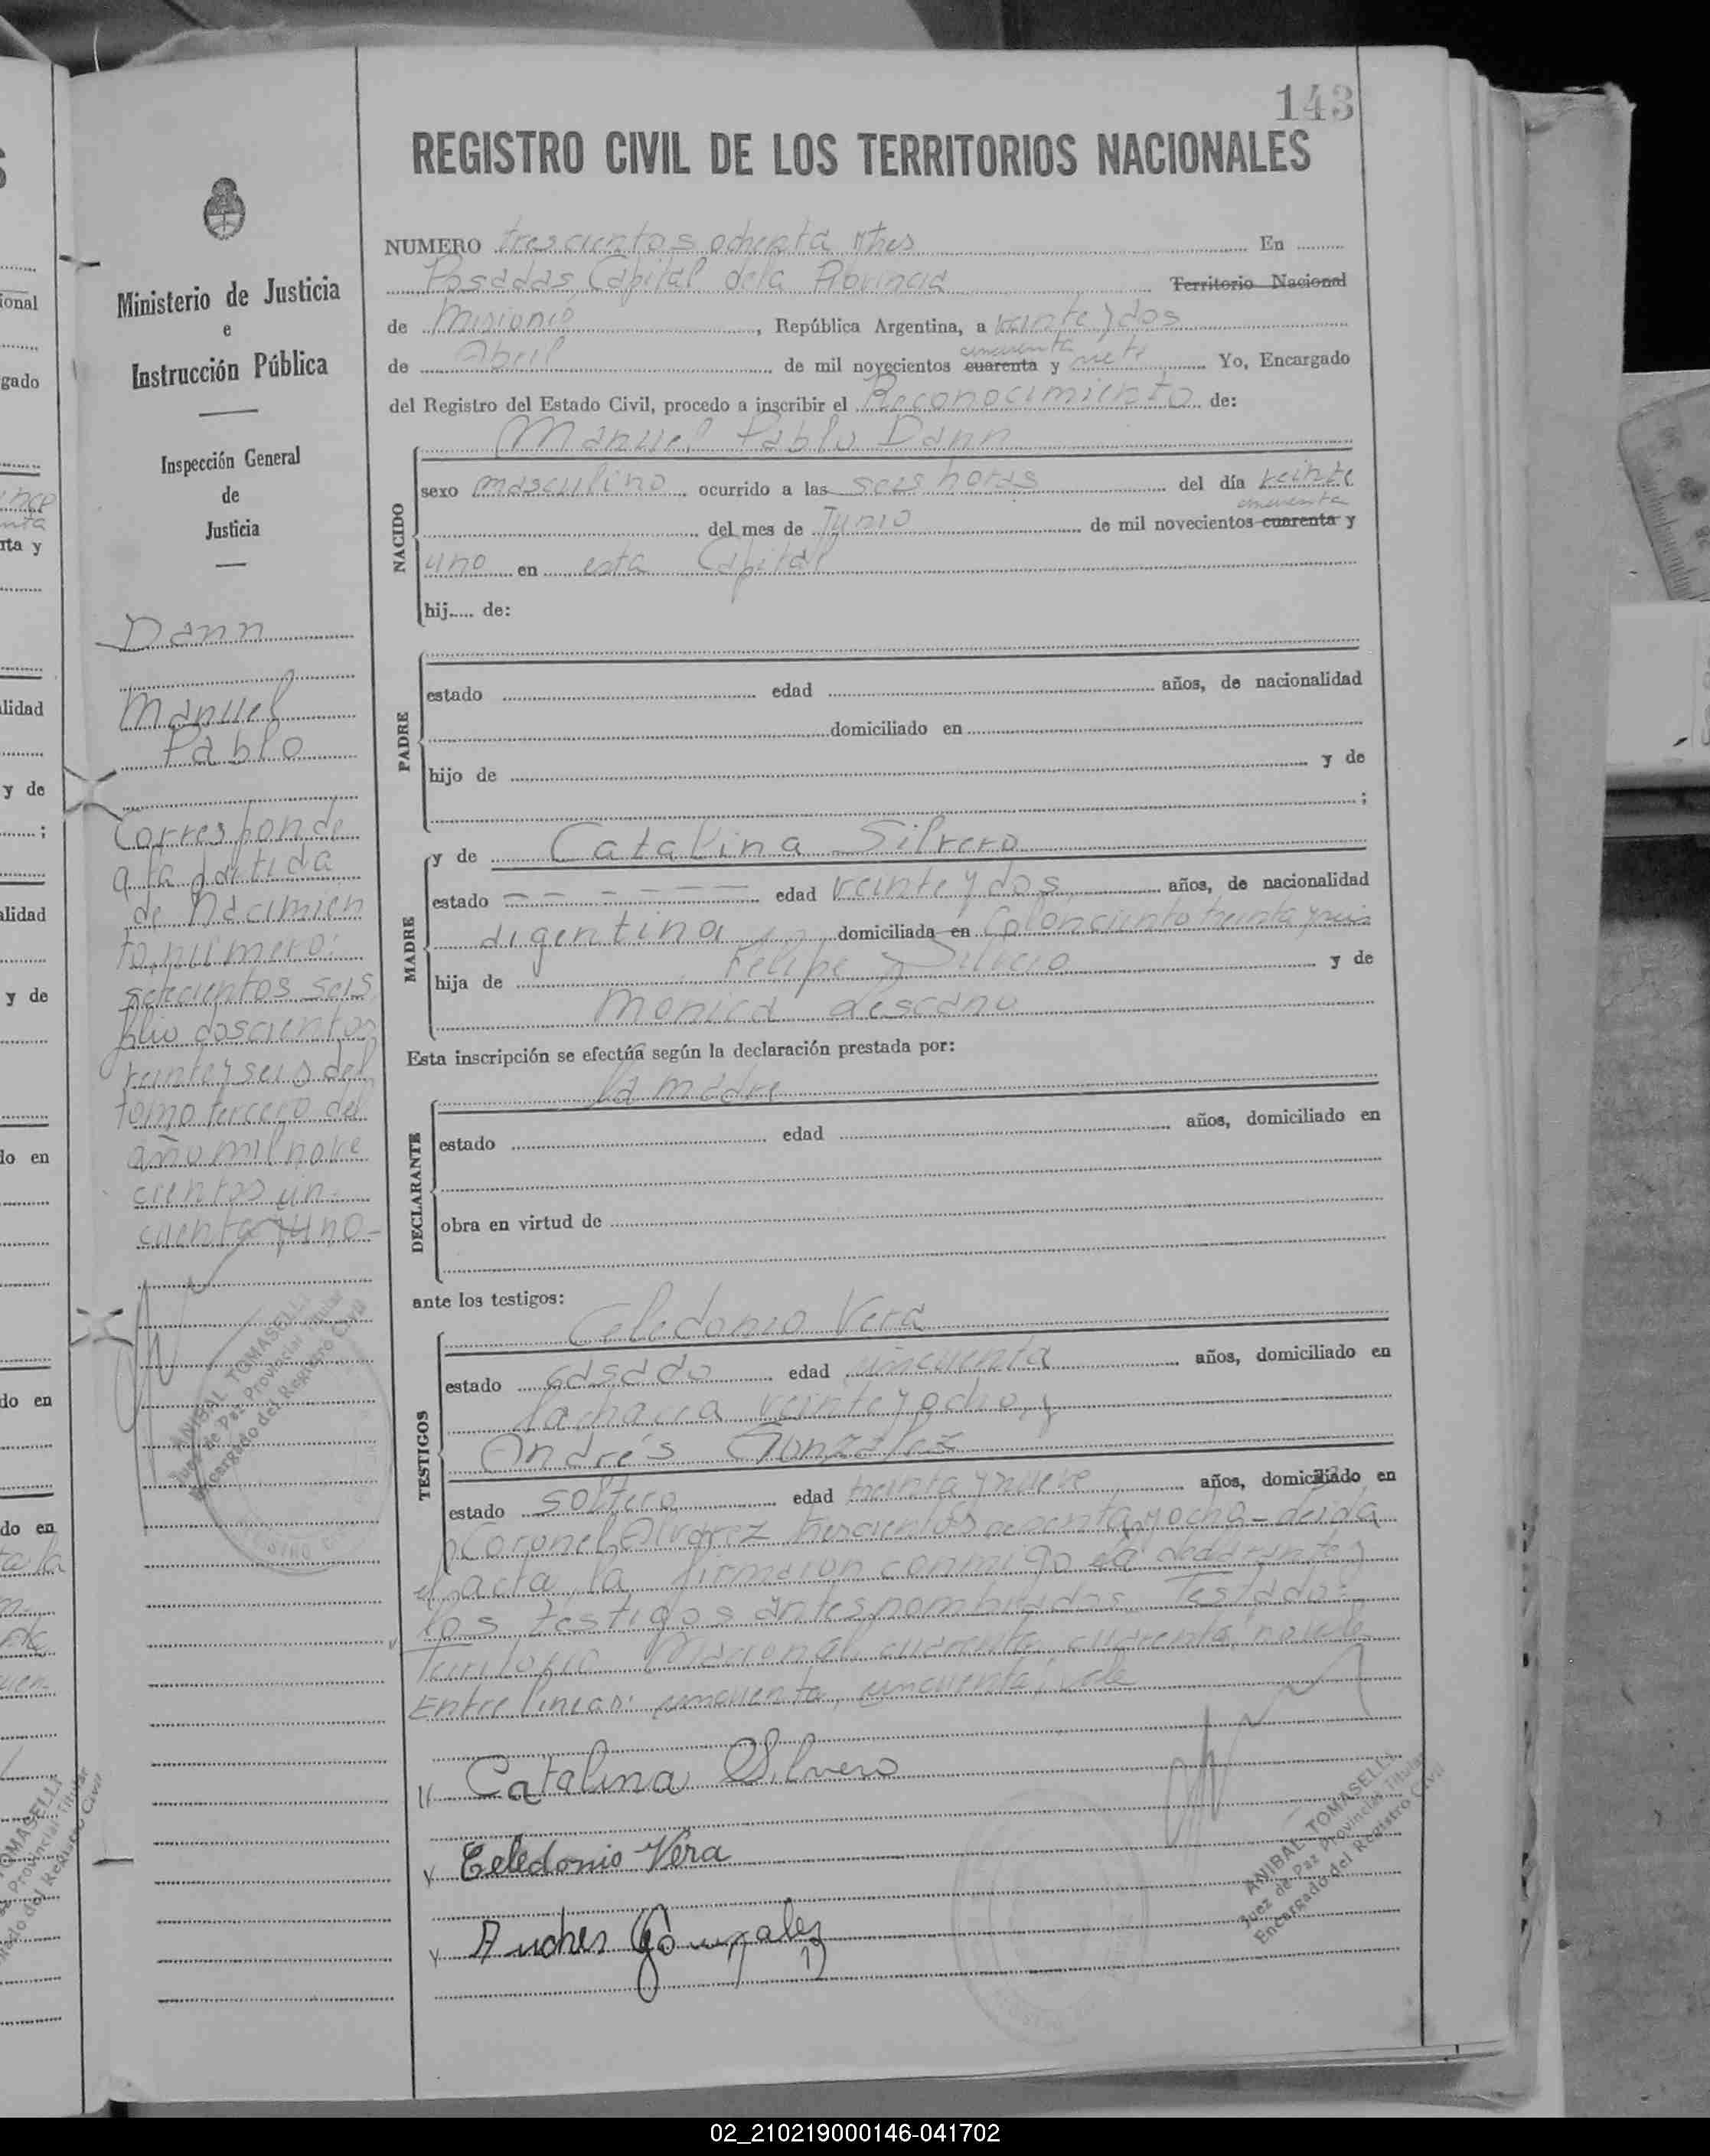 143
REGISTRO CIVIL DE LOS TERRITORIOS NACIONALES
NUMERO trescientos ochenta y tres En
Posadas, Capital de la Provincia Territorio Nacional
de Misiones, República Argentina, a veinte y dos
cincuenta
de Abril de mil novecientos cuarenta y siete Yo, Encargado
del Registro del Estado Civil, procedo a inscribir el Reconocimiento de:
Manuel Pablo Dann
NACIDO
sexo masculino ocurrido a las seis horas del día veinte
cincuenta
del mes de Junio de mil novecientos cuarenta y
uno en esta Capital
hij..... de:
PADRE
estado edad años, de nacionalidad
domiciliado en
hijo de y de
;
MADRE
y de Catalina Silvero
estado – – – – – – edad veinte y dos años, de nacionalidad
argentina domiciliada en Colon ciento treinta y
hija de Felipe Silvero y de
Monica Lescano
Esta inscripción se efectúa según la declaración prestada por:
la madre
DECLARANTE
estado edad años, domiciliado en
obra en virtud de
ante los testigos:
TESTIGOS
Celedonio Vera
estado casado edad cincuenta años, domiciliado en
la chacra veinte y ocho, y
Andrés González
estado soltero edad treinta y nueve años, domiciliado en
Coronel Alvarez trescientos y ocho - Leida
el acta la firmaron conmigo la declarante y
los testigos antes nombrados. Testado:
Territorio Nacional, cuarenta, cuarenta, no vale
Entre lineas: cincuenta, cincuenta; vale
Catalina Silvero
Celedonio Vera
Andres Gonzalez
ANIBAL TOMASELLI
Juez de Paz Provincial Titular
Encargado del Registro Civil
Ministerio de Justicia
e
Instrucción Pública
Inspección General
de
Justicia
Dann
Manuel
Pablo
Corresponde
a la partida
de nacimien
to, numero:
setecientos seis
folio doscientos
veinte y seis del
tomo tercero del
año mil nove
cientos cin-
cuenta y uno -
ANIBAL TOMASELLI
Juez de Paz Provincial Titular
Encargado del Registro Civil
02_210219000146-041702